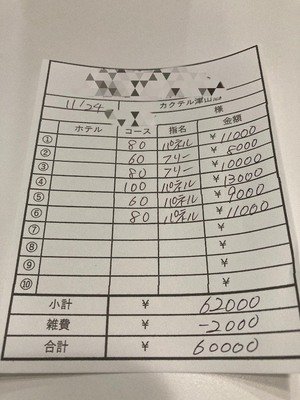 11/24 カクテル 津山
様
ホテル コース 指名 金額
① 80 パネル ¥11000
② 60 フリー ¥8000
③ 80 フリー ¥10000
④ 100 パネル ¥13000
⑤ 60 パネル ¥9000
⑥ 80 パネル ¥11000
⑦ ¥
⑧ ¥
⑨ ¥
⑩ ¥
小計 ¥ 62000
雑費 ¥ -2000
合計 ¥ 60000